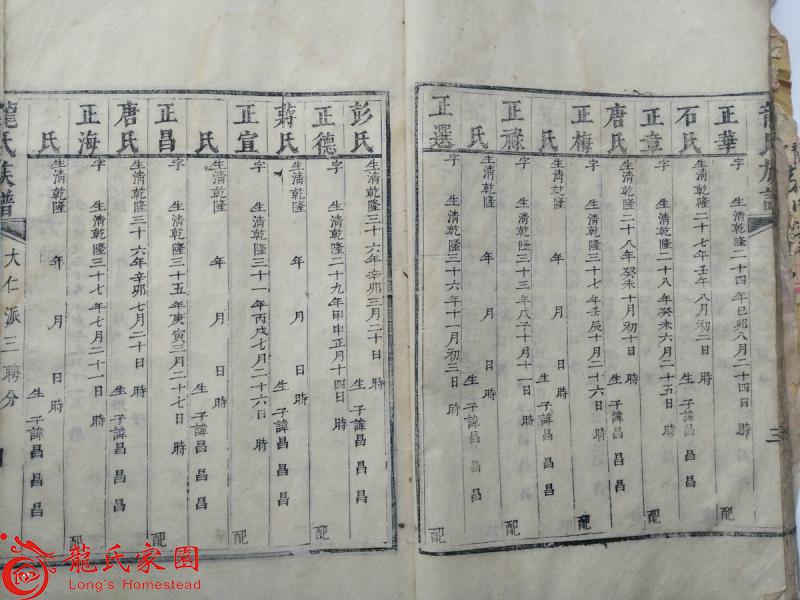 龍氏族譜
三
正華 字 生清乾隆二十四年己卯八月二十四日 時 配
石氏 生清乾隆二十七年壬午八月初二日 時 生子諱昌昌昌
正章 字 生清乾隆二十八年癸未六月二十五日 時 配
唐氏 生清乾隆二十八年癸未十月初十日 時 生子諱昌昌昌
正梅 字 生清乾隆三十七年壬辰十月二十六日 時 配
氏 生清乾隆 年 月 日 時 生子諱昌昌昌
正祿 字 生清乾隆三十三年戊子十月十一日 時 配
氏 生清乾隆 年 月 日 時 生子諱昌昌昌
正選 字 生清乾隆三十六年十一月初三日 時 配
彭氏 生清乾隆三十六年辛卯三月二十日 時 生子諱昌昌昌
正德 字 生清乾隆二十九年甲申正月十四日 時 配
蔣氏 生清乾隆 年 月 日 時 生子諱昌昌昌
正宣 字 生清乾隆三十一年丙戌七月二十六日 時 配
氏 生清乾隆 年 月 日 時 生子諱昌昌昌
正昌 字 生清乾隆三十五年庚寅三月二十七日 時 配
唐氏 生清乾隆三十六年辛卯七月二十日 時 生子諱昌昌昌
正海 字 生清乾隆三十七年七月二十一日 時 配
氏 生清乾隆 年 月 日 時 生子諱昌昌昌
龍氏族譜
大仁派三聘分
龍氏家園
Long's Homestead